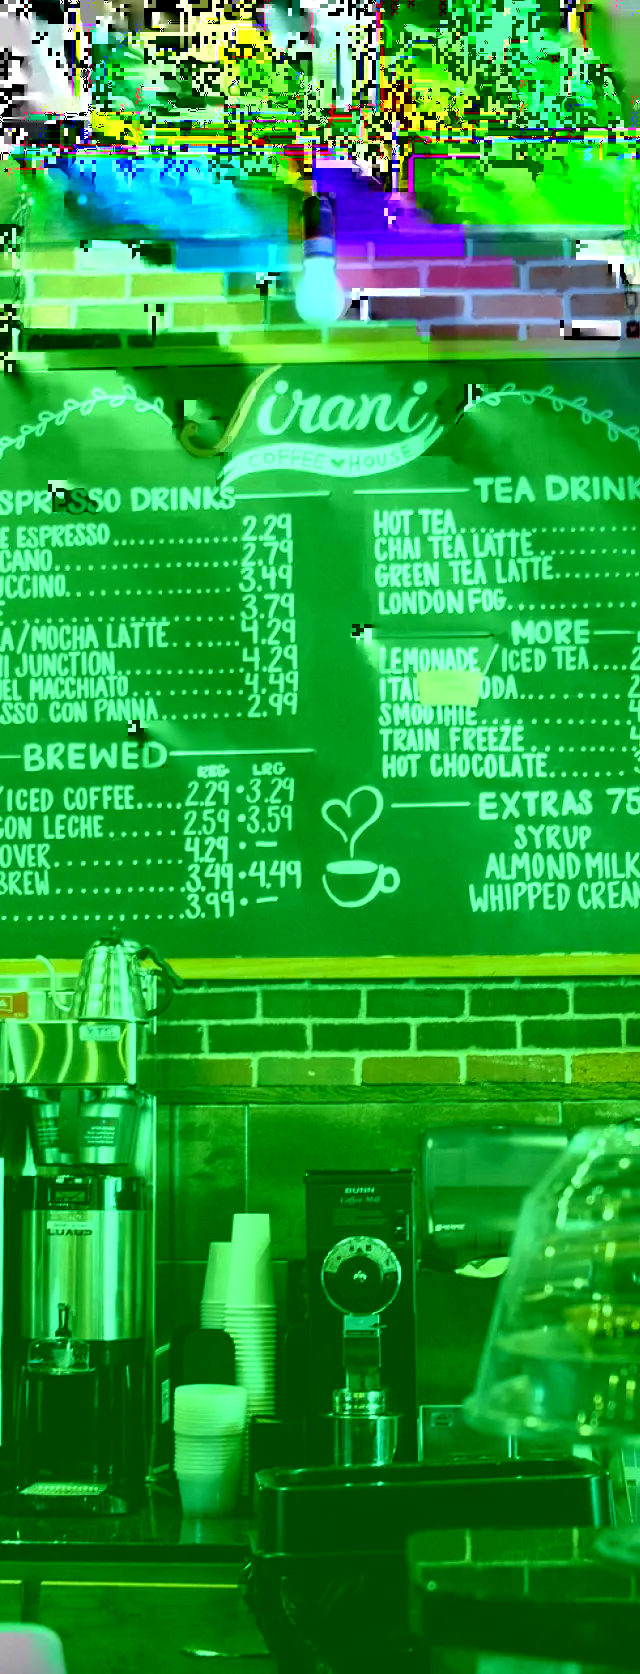 Sirani
COFFEE HOUSE
SPRESSO DRINKS
E ESPRESSO 2.29
CANO 2.79
UCCINO 3.49
3.79
A/MOCHA LATTE 4.29
I JUNCTION 4.29
EL MACCHIATO 4.49
SSO CON PANNA 2.99
BREWED
REG LRG
/ICED COFFEE 2.29 • 3.29
CON LECHE 2.59 • 3.59
OVER 4.29 • —
BREW 3.49 • 4.49
3.99 • —
TEA DRINK
HOT TEA
CHAI TEA LATTE
GREEN TEA LATTE
LONDON FOG
MORE
LEMONADE/ICED TEA 2
ITAL ODA
SMOOTHIE
TRAIN FREEZE
HOT CHOCOLATE
EXTRAS 75
SYRUP
ALMOND MILK
WHIPPED CREAM
BUNN
Coffee Mill